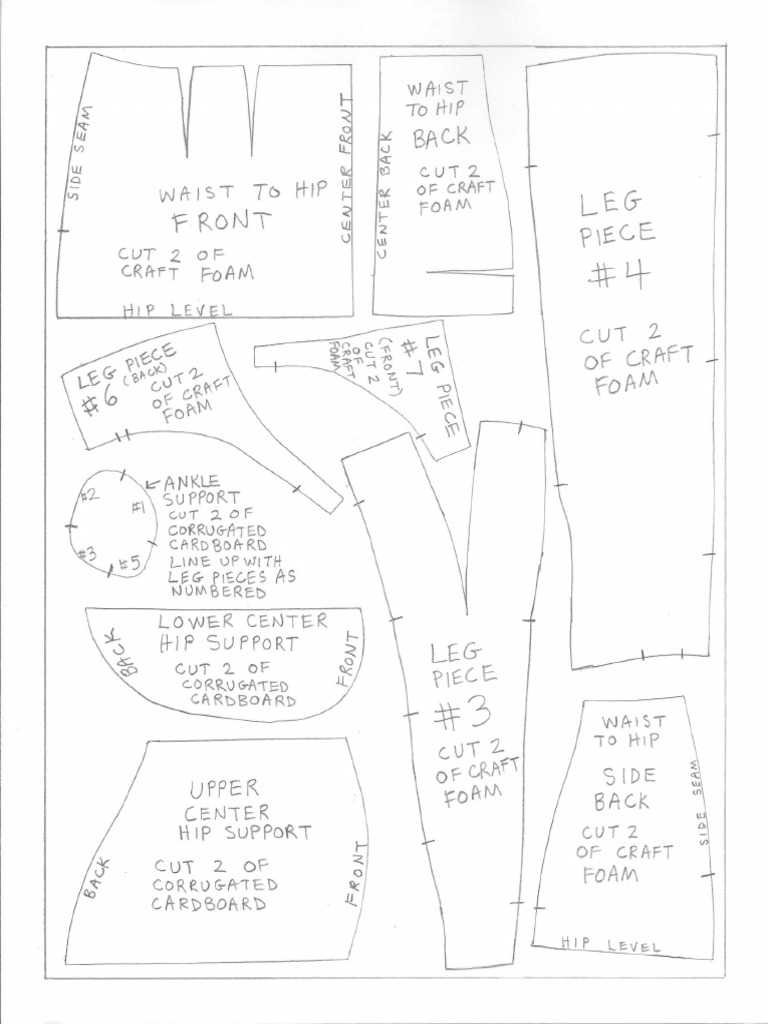 SIDE SEAM
WAIST TO HIP
FRONT
CUT 2 OF
CRAFT FOAM
HIP LEVEL
CENTER FRONT
CENTER BACK
WAIST
TO HIP
BACK
CUT 2
OF CRAFT
FOAM
LEG
PIECE
#4
CUT 2
OF CRAFT
FOAM
LEG PIECE
(BACK)
#6
CUT 2
OF CRAFT
FOAM
LEG PIECE
#7
(FRONT)
CUT 2
OF
CRAFT
FOAM
#2
#1
#3
#5
ANKLE
SUPPORT
CUT 2 OF
CORRUGATED
CARDBOARD
LINE UP WITH
LEG PIECES AS
NUMBERED
LOWER CENTER
HIP SUPPORT
CUT 2 OF
CORRUGATED
CARDBOARD
BACK
FRONT
LEG
PIECE
#3
CUT 2
OF CRAFT
FOAM
UPPER
CENTER
HIP SUPPORT
CUT 2 OF
CORRUGATED
CARDBOARD
BACK
FRONT
WAIST
TO HIP
SIDE
BACK
CUT 2
OF CRAFT
FOAM
SIDE SEAM
HIP LEVEL